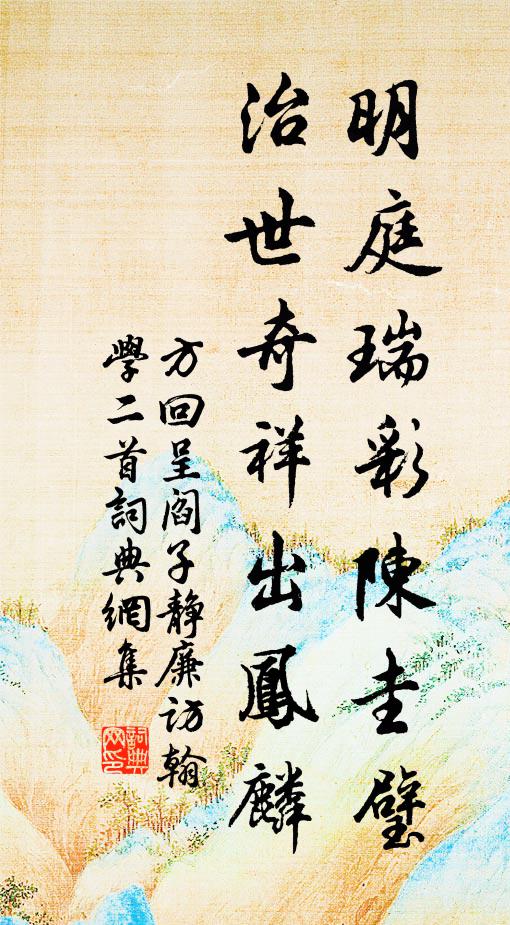 明庭瑞彩陳圭璧
治世奇祥出鳳麟
方回呈閻子靜廉訪翰
學二首詞典網集
詞典
网印